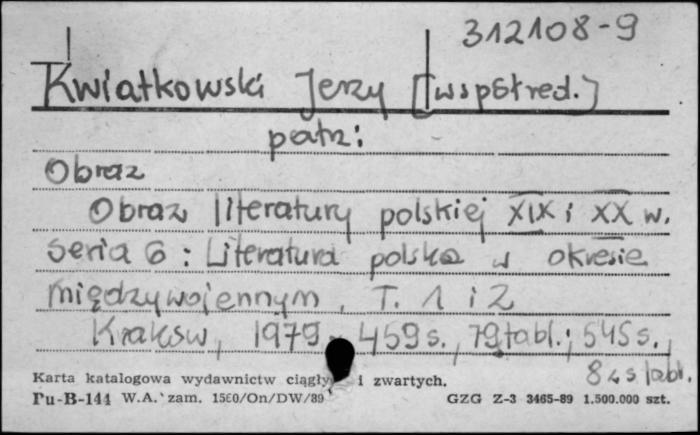 312108-9
Kwiatkowski Jerzy [współred.]
patrz:
Obraz
Obraz literatury polskiej XIX i XX w.
Seria 6 : Literatura polska w okresie
międzywojennym, T. 1 i 2
Kraków, 1979 459 s., 79 tabl.; 545 s.,
tabl.
Karta katalogowa wydawnictw ciągły i zwartych.
Pu-B-144 W.A. zam. 1580/On/DW/89 GZG Z-3 3465-89 1.500.000 szt.